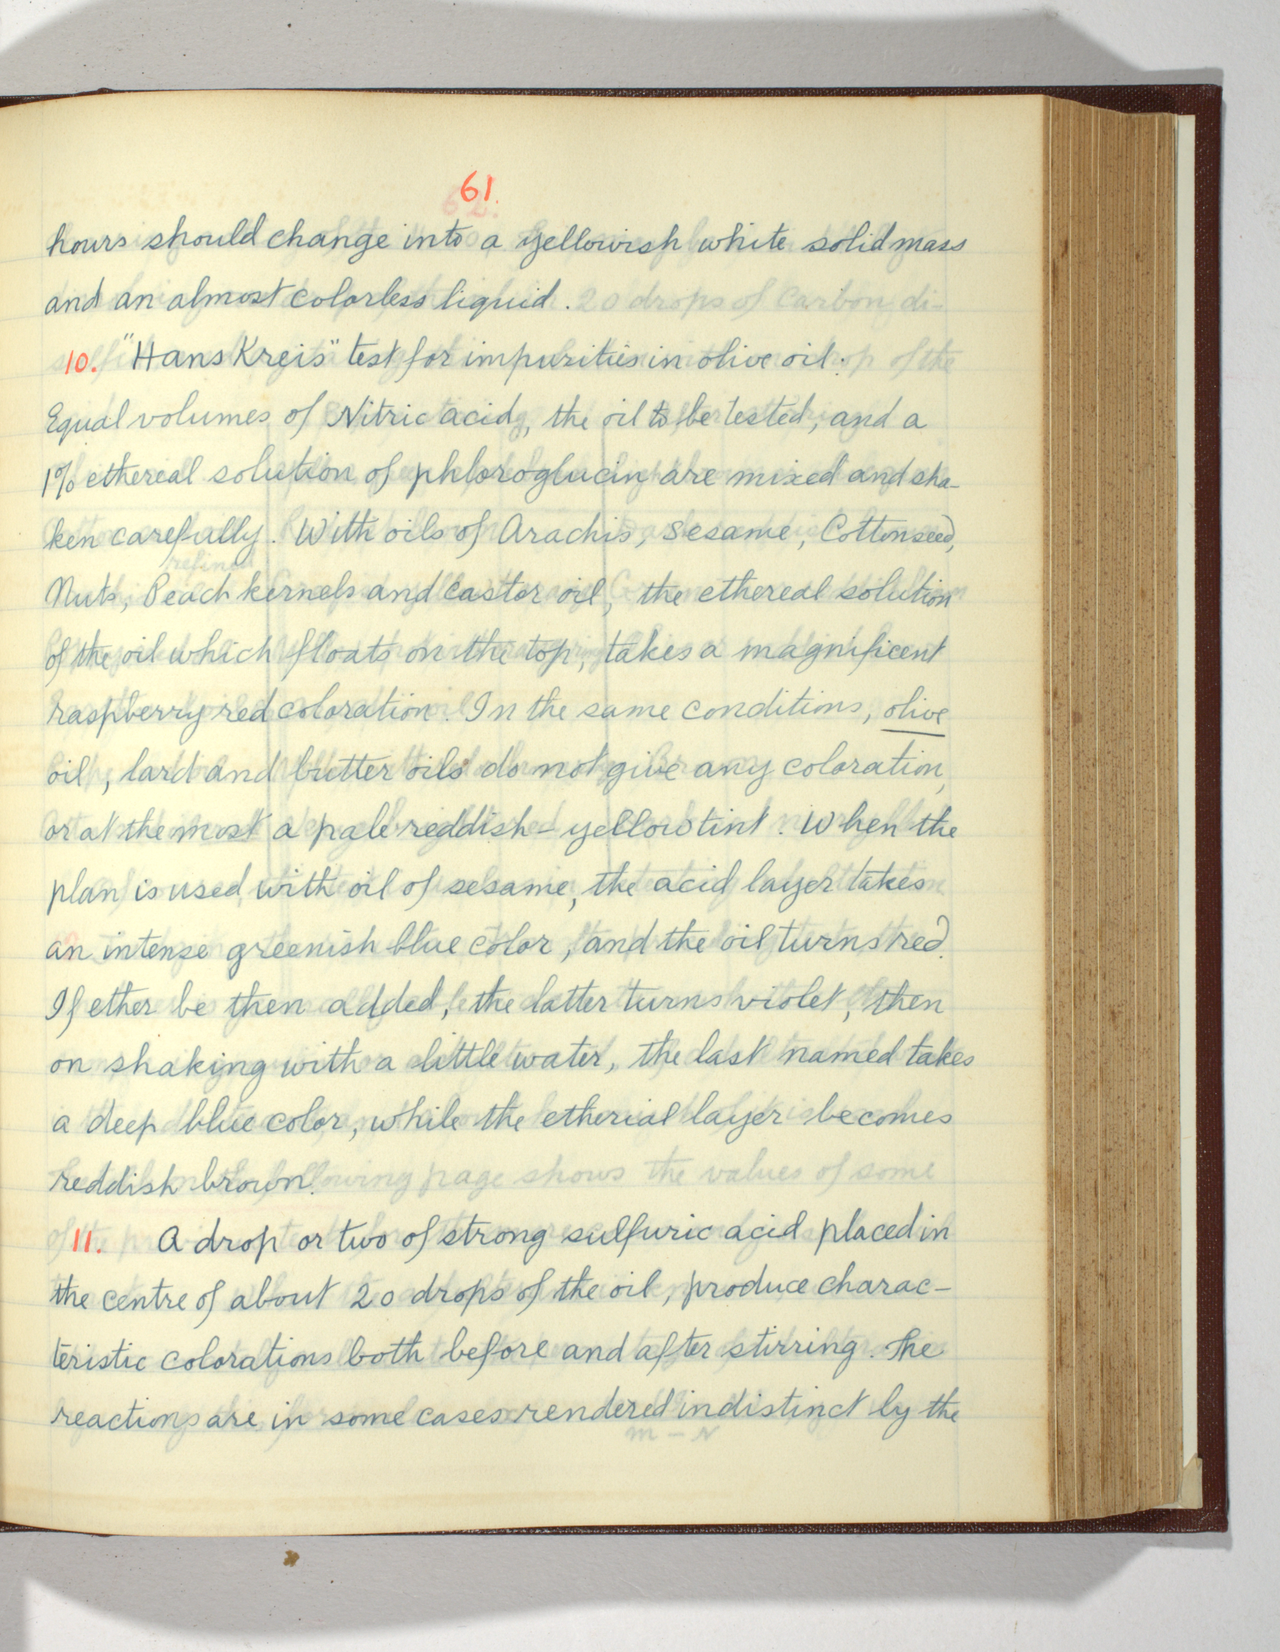 61.
hours should change into a yellowish white solid mass
and an almost colorless liquid.
10. "Hans Kreis" test for impurities in olive oil.
Equal volumes of Nitric acid, the oil to be tested, and a
1% ethereal solution of phloroglucin are mixed and sha-
ken carefully. With oils of Arachis, Sesame, Cottonseed,
Nuts, Peach kernels and castor oil, the ethereal solution
of the oil which floats on the top, takes a magnificent
raspberry red coloration. In the same conditions, olive
oil, lard and butter oils do not give any coloration,
or at the most a pale reddish-yellow tint. When the
plan is used with oil of sesame, the acid layer takes
an intense greenish blue color, and the oil turns red.
If ether be then added, the latter turns violet, then
on shaking with a little water, the last named takes
a deep blue color, while the etherial layer becomes
reddish brown.
11. A drop or two of strong sulfuric acid placed in
the centre of about 20 drops of the oil, produce charac-
teristic colorations both before and after stirring. The
reactions are in some cases rendered indistinct by the